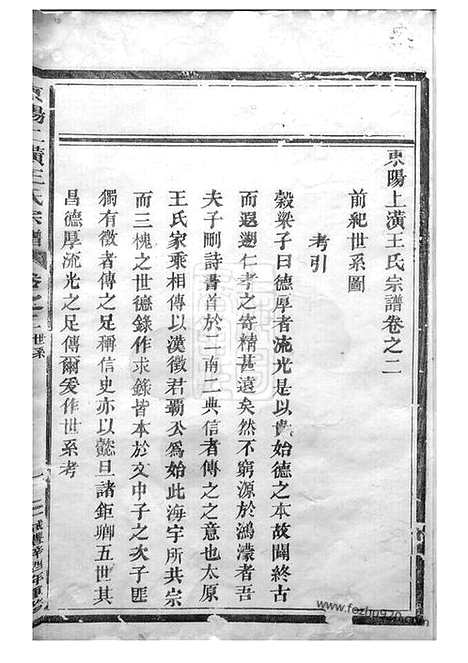 東陽上潢王氏宗譜卷之二
前紀世系圖
考引
穀梁子曰德厚者流光是以貴始德之本故闢終古
而遐遡仁孝之寄精甚遠矣然不窮源於鴻濛者吾
夫子刪詩書首於二南二典信者傳之之意也太原
王氏家乘相傳以漢徵君霸公爲始此海宇所共宗
而三槐之世德錄作求錄皆本於文中子之次子匪
獨有徵者傳之足稱信史亦以懿旦諸鉅卿五世其
昌德厚流光之足傳爾爰作世系考
東陽上潢王氏宗譜
卷之二世系
www.fozhu920.com